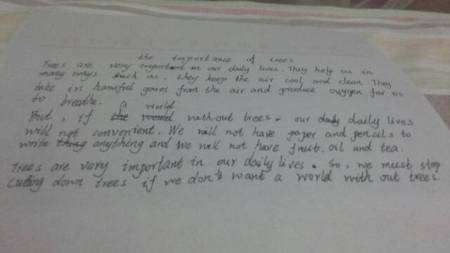 the importance of trees
Trees are very important in our daily lives. They help us in
many ways such as, they keep the air cool and clean. They
take in harmful gases from the air and produce oxygen for us
to breathe.
But, if a world without trees. our daily daily lives
will not convenient. We will not have paper and pencils to
write anything and We will not have fruit. oil and tea.
Trees are very important in our daily lives. So, we must stop
cutting down trees if we don't want a world with out trees.